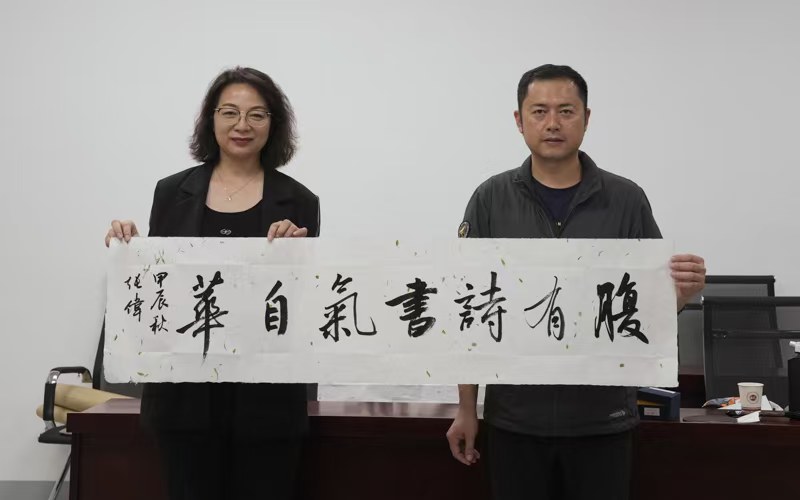 腹有詩書氣自華
甲辰秋
任偉